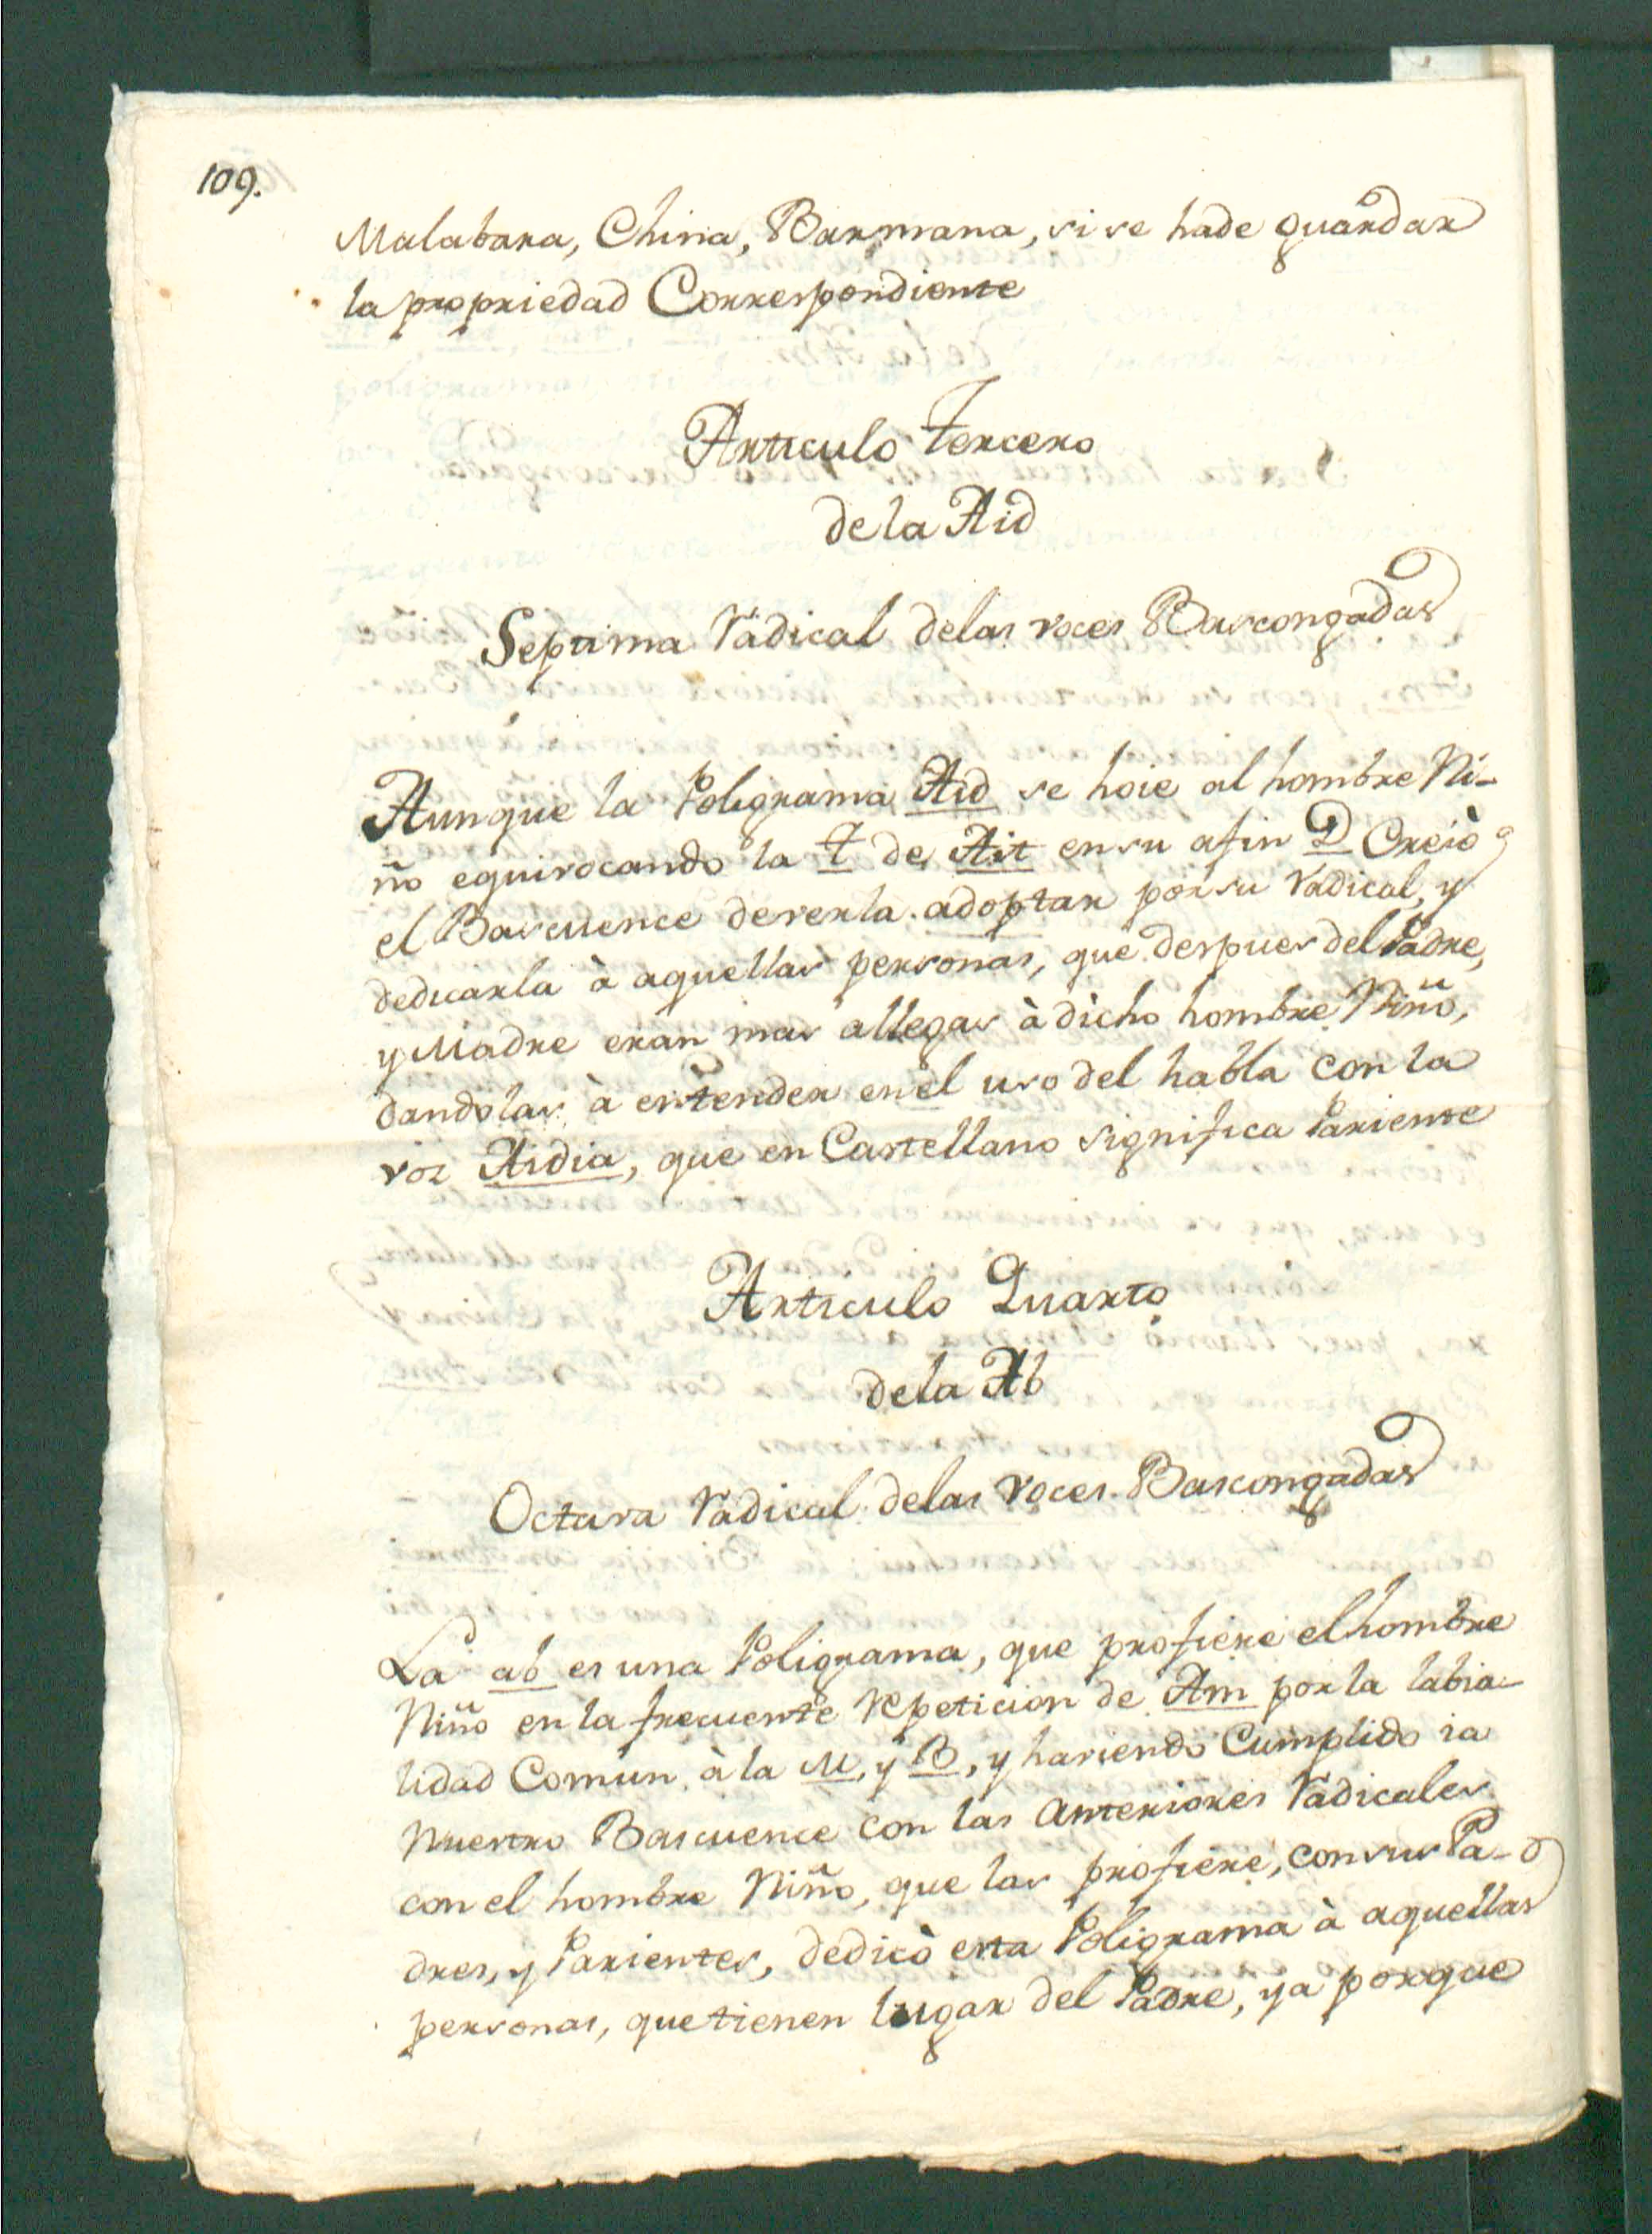 109.
Malabara, China, Barmana, si se hade guardar
la propriedad Correspondiente
Articulo Tercero
de la Aid
Septima Radical delas voces Bascongadas
Aunque la Poligrama Aid se hoie al hombre Ni-
ño equivocando la T de Ait en su afin D Creiò
el Bascuence deverla adoptar por su Radical, y
dedicarla à aquellas personas, que despues del Padre,
y Madre eran mas allegas à dicho hombre Niño,
dandolas à entender en el uso del habla con la
voz Aidia, que en Castellano significa Pariente
Articulo Quarto
dela Ab
Octava Radical delas voces Bascongadas
La ab es una Poligrama, que profiere el hombre
Niño en la frecuente repeticion de Am por la labia-
lidad Comun à la M, y B, y haviendo Cumplido ia
Nuestro Bascuence con las anteriores Radicales
con el hombre Niño, que las profiere, con sus Pa-
dres, y Parientes, dedicò esta Poligrama à aquellas
personas, que tienen lugar del Padre, ya porque